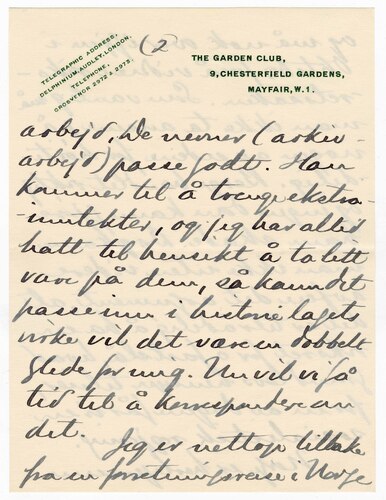 TELEGRAPHIC ADDRESS,
DELPHINIUM, AUDLEY, LONDON.
TELEPHONE,
GROSVENOR 2972 & 2973.
(2
THE GARDEN CLUB,
9, CHESTERFIELD GARDENS,
MAYFAIR, W.1.
arbejd, De nevner (arkiv-
arbejd) passe godt. Han
kommer til å trenge ekstra-
inntekter, og jeg har altid
hatt til hensikt å ta litt
vare på dem, så kann det
passe inn i historielagets
virke vil det være en dobbelt
glede for mig. Nu vil vi få
tid til å korrespondere om
det.
Jeg er nettop tilbake
fra en forretningsreise i Norge